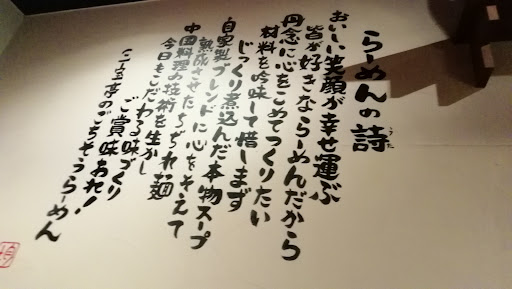 らーめんの詩
うた
おいしい笑顔が幸せ運ぶ
皆が好きならーめんだから
丹念に心をこめてつくりたい
材料を吟味して惜しまず
じっくり煮込んだ本物スープ
自家製ブレンドに心をそえて
熟成させたちぢれ麺
中国料理の技術を生かし
今日もこだわる味づくり
ご賞味あれ!
亭のごちそうらーめん